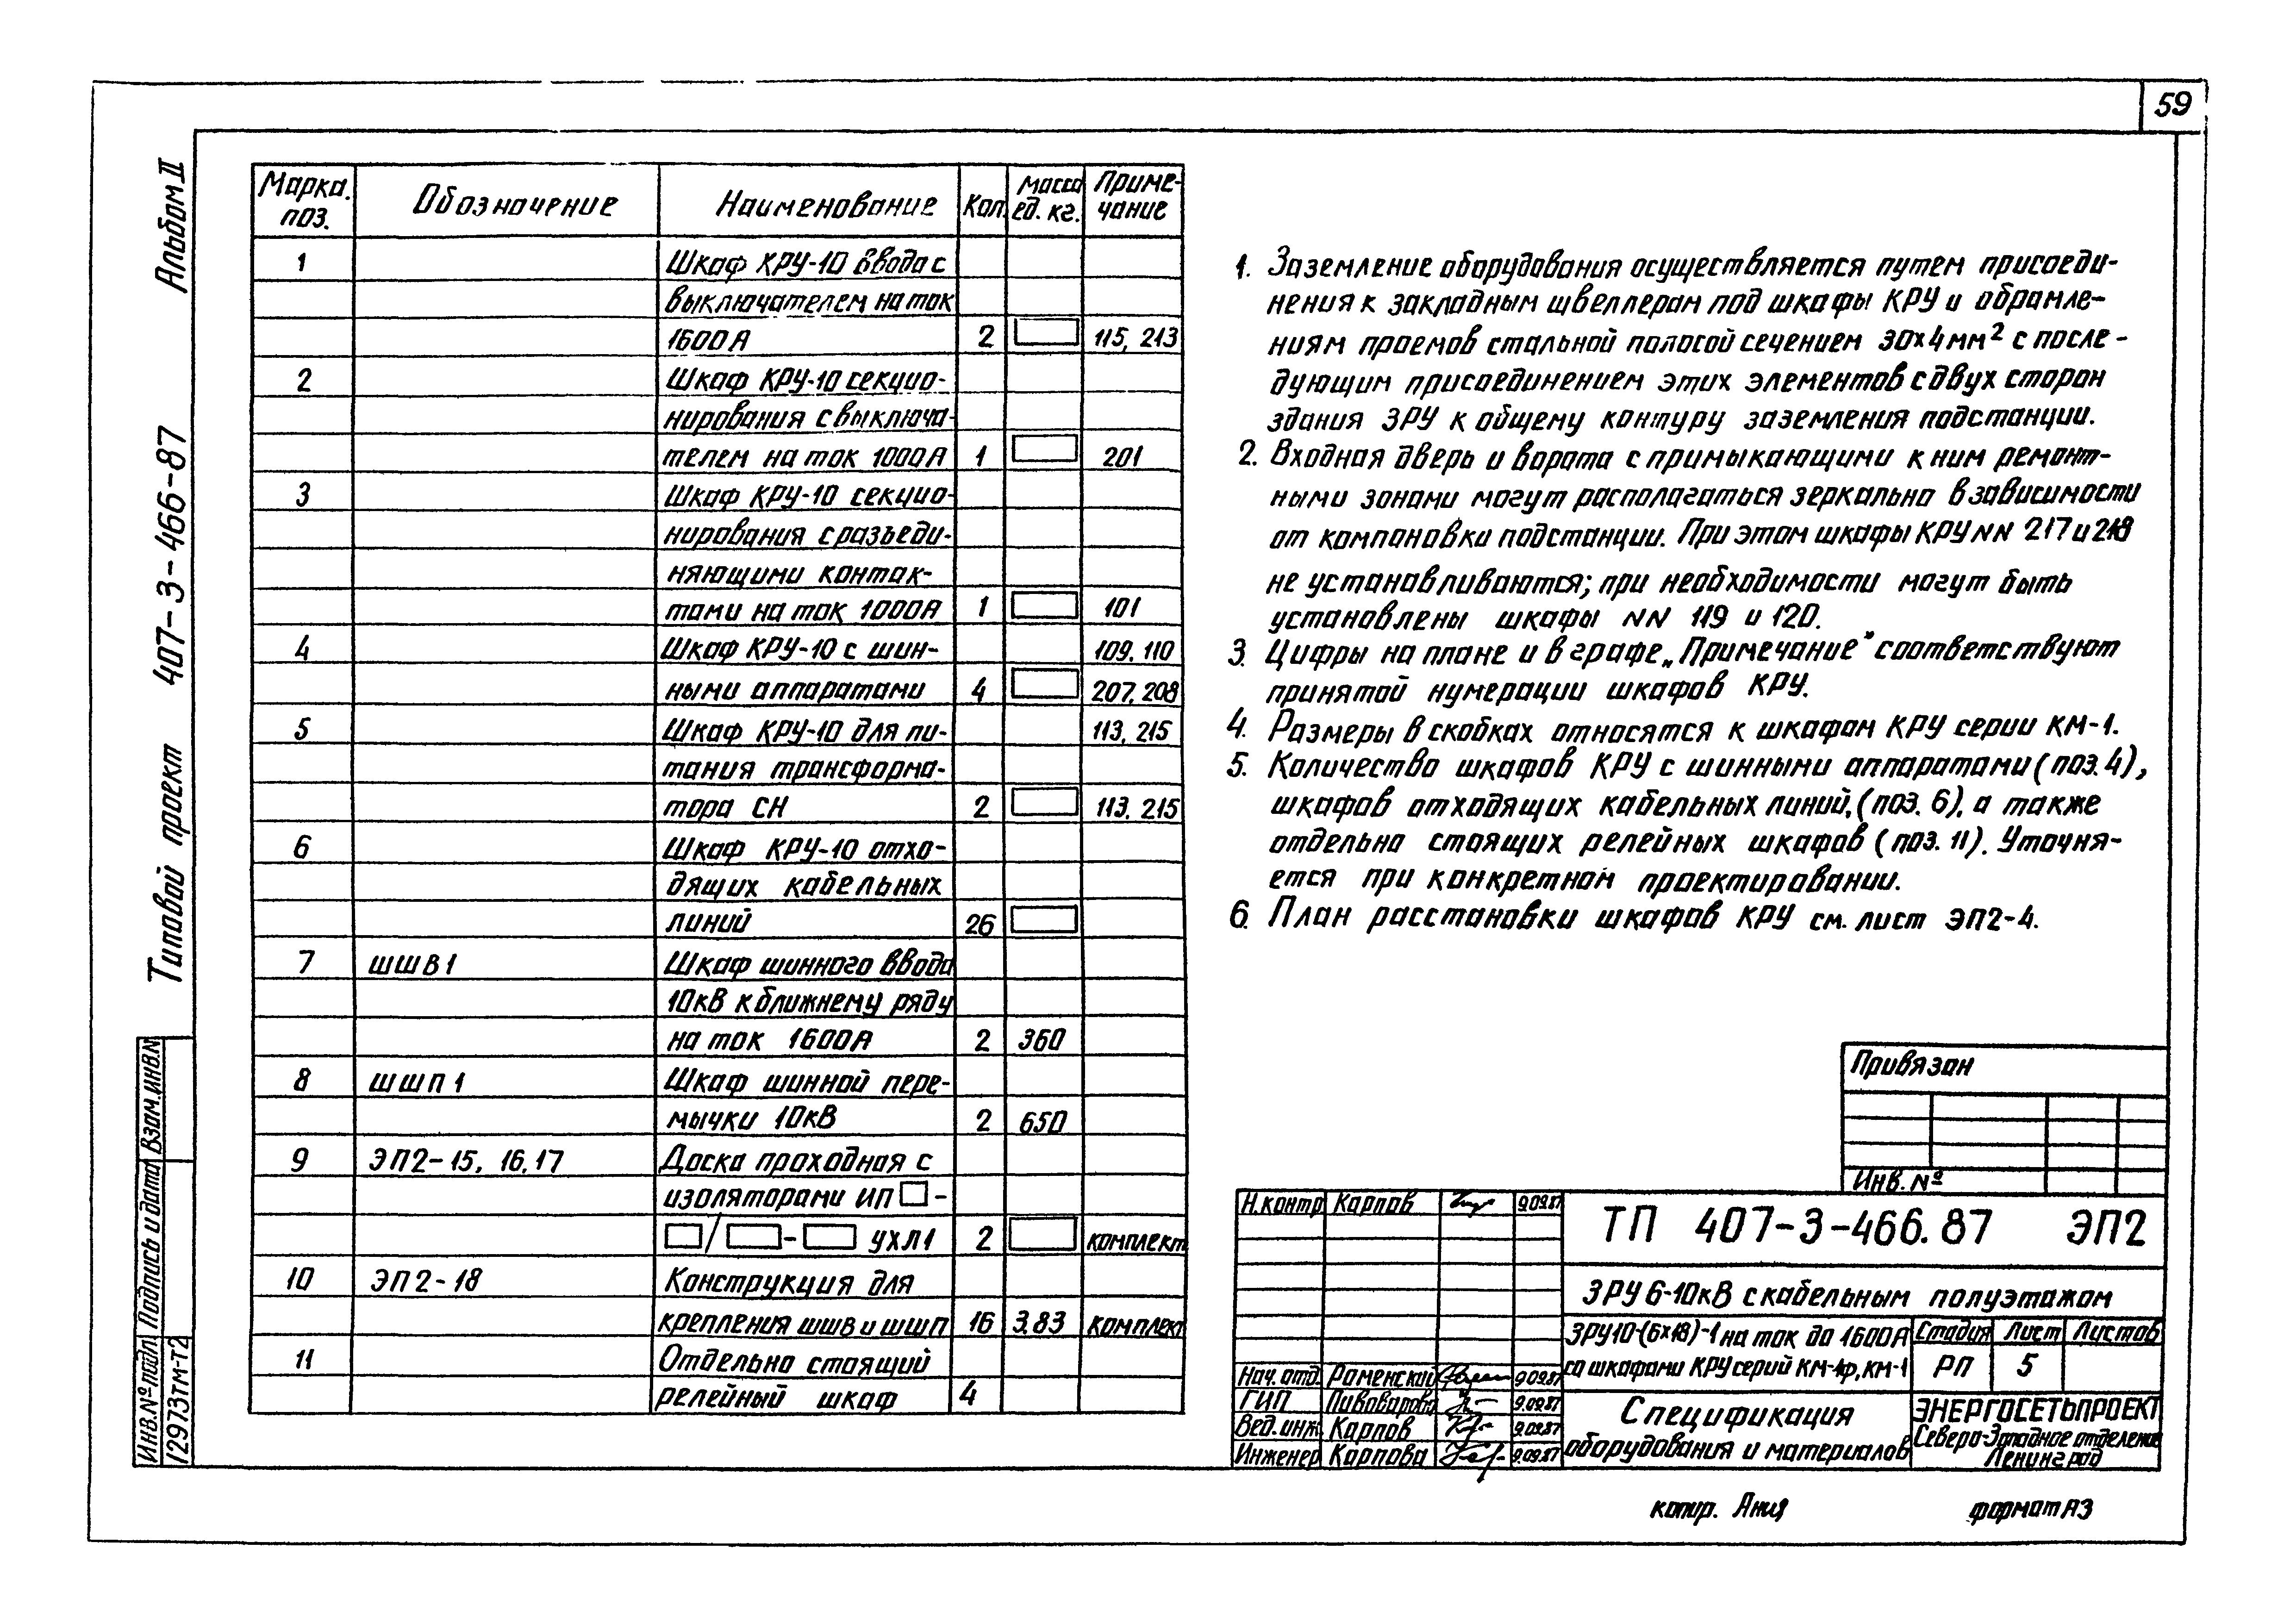 59
Альбом II
Типовой проект 407-3-466-87
Взам.инв.№
Подпись и дата
Инв.№ подл.
12973тм-т2
Марка. поз. Обозначение Наименование Кол. Масса ед. кг. Приме-чание
1 Шкаф КРУ-10 ввода с
выключателем на ток
1600А 2 115, 213
2 Шкаф КРУ-10 секцио-
нирования с выключа-
телем на ток 1000А 1 201
3 Шкаф КРУ-10 секцио-
нирования с разъеди-
няющими контак-
тами на ток 1000А 1 101
4 Шкаф КРУ-10 с шин- 109, 110
ными аппаратами 4 207, 208
5 Шкаф КРУ-10 для пи- 113, 215
тания трансформа-
тора СН 2 113, 215
6 Шкаф КРУ-10 отхо-
дящих кабельных
линий 26
7 ШШВ1 Шкаф шинного ввода
10кВ к ближнему ряду
на ток 1600А 2 360
8 ШШП1 Шкаф шинной пере-
мычки 10кВ 2 650
9 ЭП2-15, 16, 17 Доска проходная с
изоляторами ИП □-
□/□-□ УХЛ1 2 комплект
10 ЭП2-18 Конструкция для
крепления ШШВ и ШШП 16 3,83 комплект
11 Отдельно стоящий
релейный шкаф 4
1. Заземление оборудования осуществляется путем присоеди-
нения к закладным швеллерам под шкафы КРУ и обрамле-
ниям проемов стальной полосой сечением 30х4мм² с после-
дующим присоединением этих элементов с двух сторон
здания ЗРУ к общему контуру заземления подстанции.
2. Входная дверь и ворота с примыкающими к ним ремонт-
ными зонами могут располагаться зеркально в зависимости
от компановки подстанции. При этом шкафы КРУ NN 217 и 218
не устанавливаются; при необходимости могут быть
установлены шкафы NN 119 и 120.
3. Цифры на плане и в графе „Примечание" соответствуют
принятой нумерации шкафов КРУ.
4. Размеры в скобках относятся к шкафам КРУ серии КМ-1.
5. Количество шкафов КРУ с шинными аппаратами (поз. 4),
шкафов отходящих кабельных линий, (поз. 6), а также
отдельно стоящих релейных шкафов (поз. 11). Уточня-
ется при конкретном проектировании.
6. План расстановки шкафов КРУ см. лист ЭП2-4.
Привязан
Инв. №
Н.контр Карпов 9.09.87
Нач. отд. Роменский 9.09.87
ГИП Пивоварова 9.09.87
Вед. инж. Карпов 9.09.87
Инженер Карпова 9.09.87
ТП 407-3-466.87 ЭП2
ЗРУ 6-10кВ с кабельным полуэтажом
ЗРУ10-(6х18)-1 на ток до 1600А
со шкафами КРУ серий КМ-1ф, КМ-1
Стадия Лист Листов
РП 5
Спецификация
оборудования и материалов
ЭНЕРГОСЕТЬПРОЕКТ
Северо-Западное отделение
Ленинград
копир. Ания
формат А3